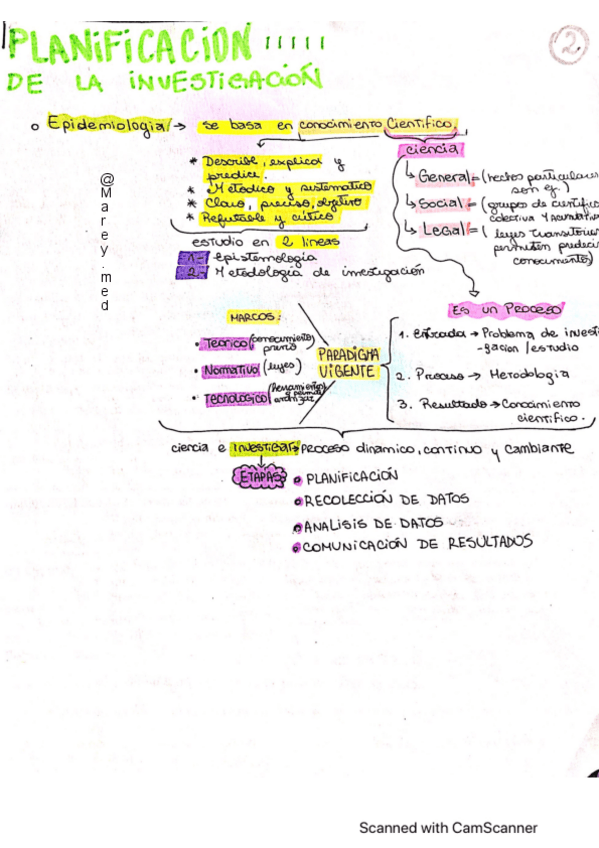 PLANIFICACION
2
DE LA INVESTIGACIÓN
o Epidemiologia → se basa en conocimiento Científico.
* Describe, explica y
predice.
* Metódico y sistematico
* Claro, preciso, objetivo
* Refutable y crítico
ciencia
General = (hechos particulares
son ej.)
Social = (grupos de científic
colectiva y acumulativa
Legal = ( leyes transitorias
permiten predeci
conocimientos)
estudio en 2 lineas
1- epistemología
2- Metodología de investigación
@Marey.med
ES UN PROCESO
MARCOS:
• Teorico (conocimiento
previo
• Normativo (leyes)
• Tecnologico (herramientas
PARADIGMA
VIGENTE
1. entrada → Problema de investi
-gacion / estudio
2. Proceso → Metodologia
3. Resultado → Conocimiento
cientifico.
ciencia e investigar → proceso dinamico, continuo y cambiante
ETAPAS
PLANIFICACIÓN
RECOLECCIÓN DE DATOS
ANALISIS DE DATOS
COMUNICACIÓN DE RESULTADOS
Scanned with CamScanner